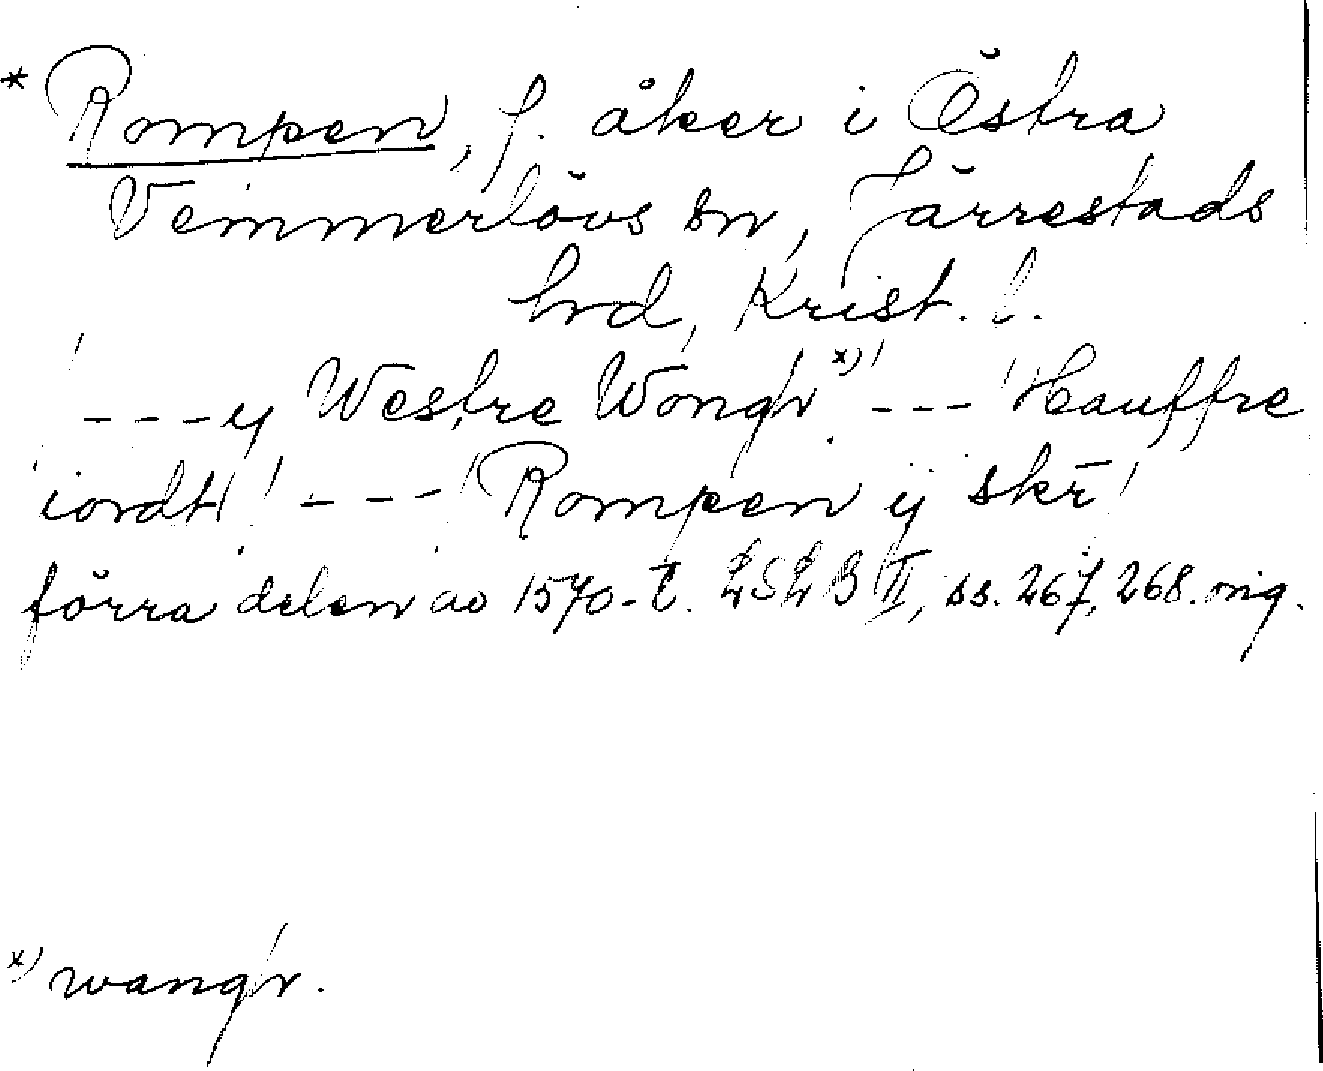 * Rompen, f. åker i Östra
Vemmerlövs sn, Järrestads
hrd, Krist. l.
' - - - y Westre Wongh x) ' - - - ' Hauffre
iordt ' - - - ' Rompen ij skr̄ '
förra delen av 1570-t. LSLB II, ss. 267, 268. orig.
x) wangh.